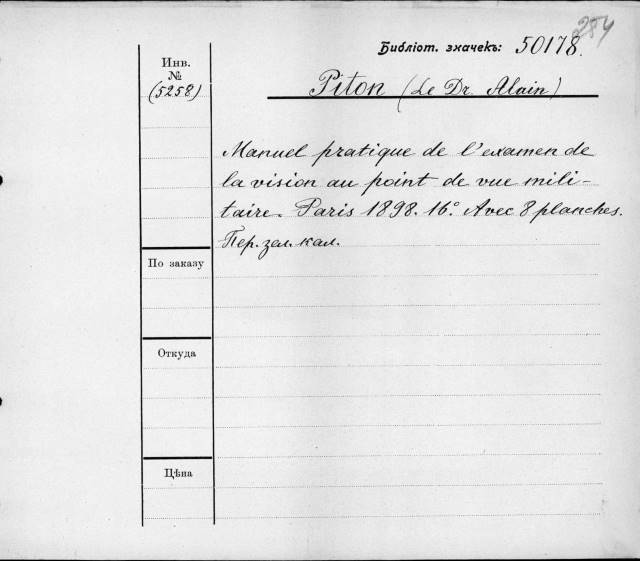 284
Библіот. значекъ: 50178.
Инв.
№
(5258)
Piton (Le Dr. Alain)
Manuel pratique de l'examen de
la vision au point de vue mili-
taire. Paris 1898. 16° Avec 8 planches.
Пер. зел. кал.
По заказу
Откуда
Цѣна